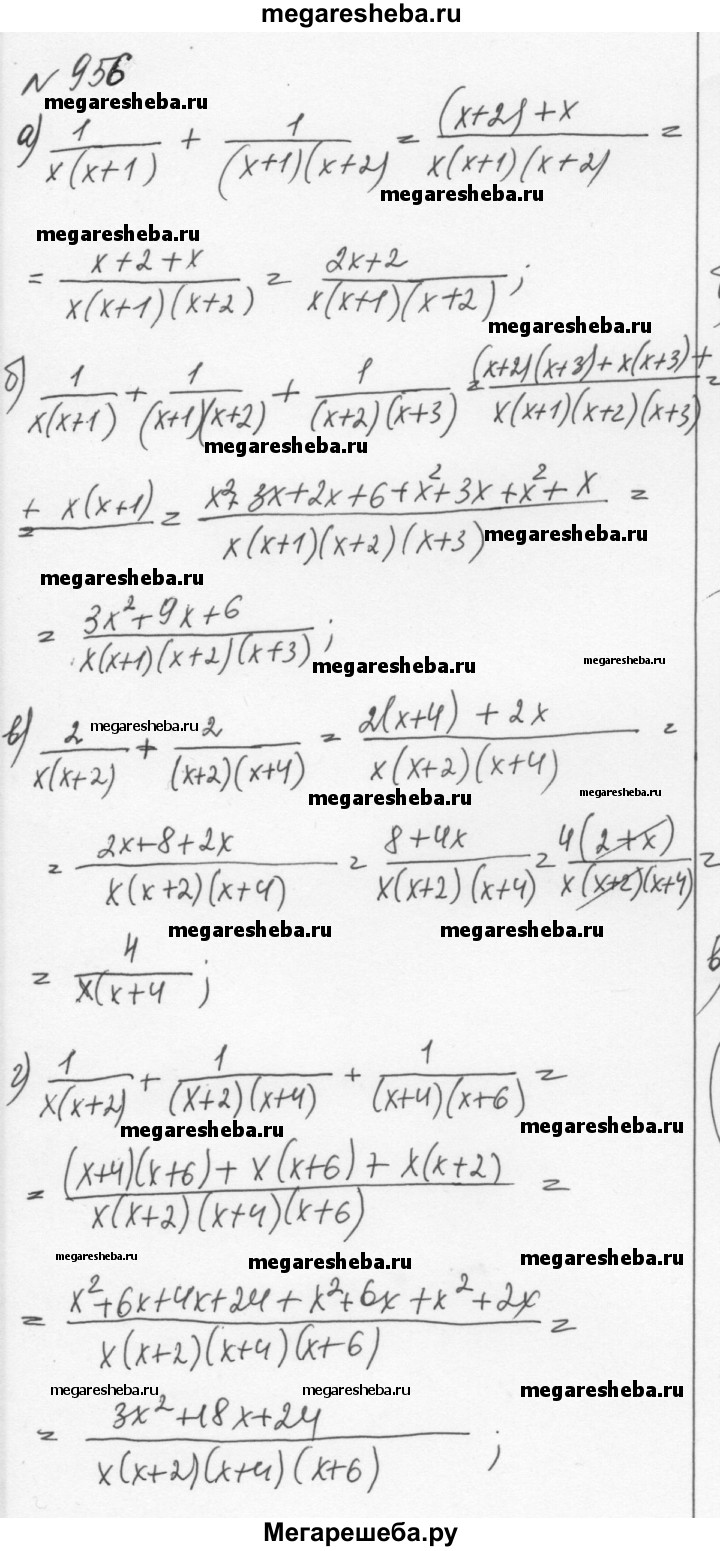 megaresheba.ru
N 956
megaresheba.ru
а) 1/(x(x+1)) + 1/((x+1)(x+2)) = ((x+2)+x)/(x(x+1)(x+2)) =
megaresheba.ru
megaresheba.ru
= (x+2+x)/(x(x+1)(x+2)) = (2x+2)/(x(x+1)(x+2)) ;
megaresheba.ru
б) 1/(x(x+1)) + 1/((x+1)(x+2)) + 1/((x+2)(x+3)) = ((x+2)(x+3)+x(x+3)+)/(x(x+1)(x+2)(x+3)) =
megaresheba.ru
+ x(x+1) = (x²+3x+2x+6+x²+3x+x²+x)/(x(x+1)(x+2)(x+3)) =
megaresheba.ru
megaresheba.ru
= (3x²+9x+6)/(x(x+1)(x+2)(x+3)) ;
megaresheba.ru megaresheba.ru
в) 2/(x(x+2)) + 2/((x+2)(x+4)) = (2(x+4)+2x)/(x(x+2)(x+4)) =
megaresheba.ru
megaresheba.ru megaresheba.ru
= (2x+8+2x)/(x(x+2)(x+4)) = (8+4x)/(x(x+2)(x+4)) = 4(2+x)/(x(x+2)(x+4)) =
megaresheba.ru megaresheba.ru
= 4/(x(x+4 ;
г) 1/(x(x+2)) + 1/((x+2)(x+4)) + 1/((x+4)(x+6)) =
megaresheba.ru megaresheba.ru
= ((x+4)(x+6)+x(x+6)+x(x+2))/(x(x+2)(x+4)(x+6)) =
megaresheba.ru megaresheba.ru megaresheba.ru
= (x²+6x+4x+24+x²+6x+x²+2x)/(x(x+2)(x+4)(x+6)) =
megaresheba.ru megaresheba.ru megaresheba.ru
= (3x²+18x+24)/(x(x+2)(x+4)(x+6)) ;
Мегарешеба.ру